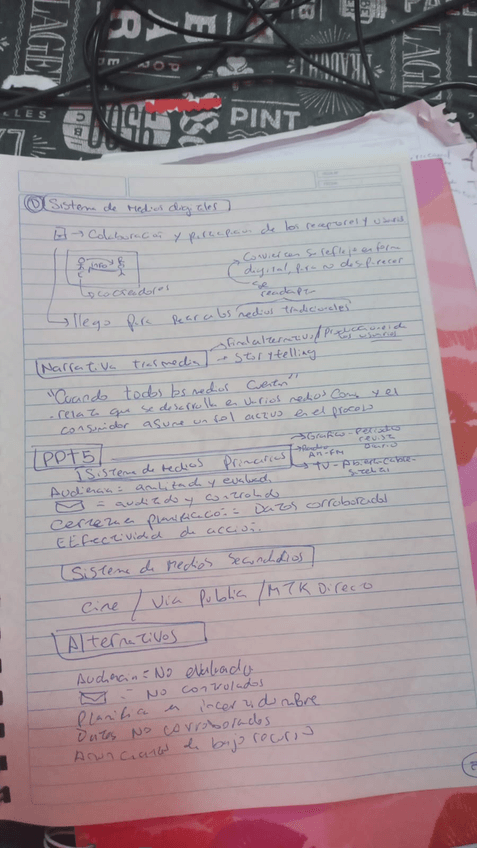 PINT
① Sistema de Medios digitales
→ Colaboración y participación de los receptores y usuarios
info
→ cocreadores
Convierten su reflejo en forma
digital, para no desaparecer
se
readapta
→ llego para los medios tradicionales
Narrativa trasmedia
→ Final alternativo / Producciones de
los usuarios
→ Storytelling
"Cuando todos los medios cuentan"
. relato que se desarrolla en varios medios Com. y el
consumidor asume un rol activo en el proceso
PPT5
Sistema de Medios Primarios
→ Grafico - Periodico
revista
Diario
→ Radio
AM-FM
→ TV - Abierta, Cable-
Audiencia = auditada y evaluada
= auditado y controlado
Certeza en planificación = Datos corroborados
Efectividad de acción
Sistema de Medios Secundarios
Cine / Via Publica / MTK Directo
Alternativos
Audiencia = No evaluada
= No controlados
Planifica en incertidumbre
Datos No corroborados
de bajo recurso